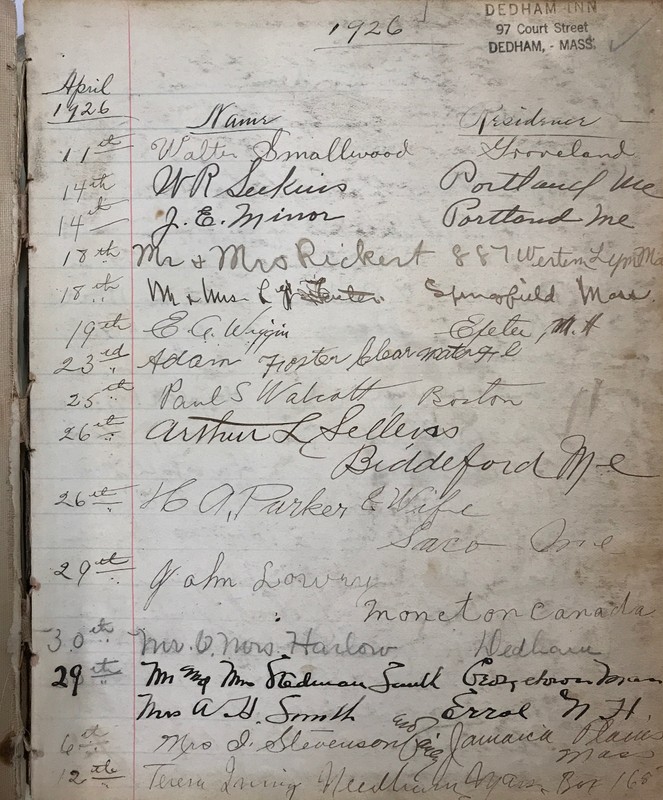 1926
DEDHAM INN
97 Court Street
DEDHAM, - MASS.
April
1926
Name Residence
11th Walter Smallwood Groveland
14th W R Seekins Portland Me
14th J. E. Minor Portland Me
18th Mr & Mrs Rickert 887 Western Lynn Ma
18th Mr & Mrs. Springfield Mass.
19th E. A. Wiggin Exeter, N. H
23rd Adam Foster
25th Paul S Walcott Boston
26th Arthur L Sellers
Biddeford Me
26th H A, Parker & Wife
Saco Me
29th John Lowry
Moncton Canada
30th Mr. & Mrs. Harlow Dedham
29th Mr and Mrs Stedman Smith Georgetown Mass
Mrs A. H. Smith Errol N. H.
6th Mrs J. Stevenson Jamaica Plain
Mass
12th Teresa Irving Needham Mass. Box 168